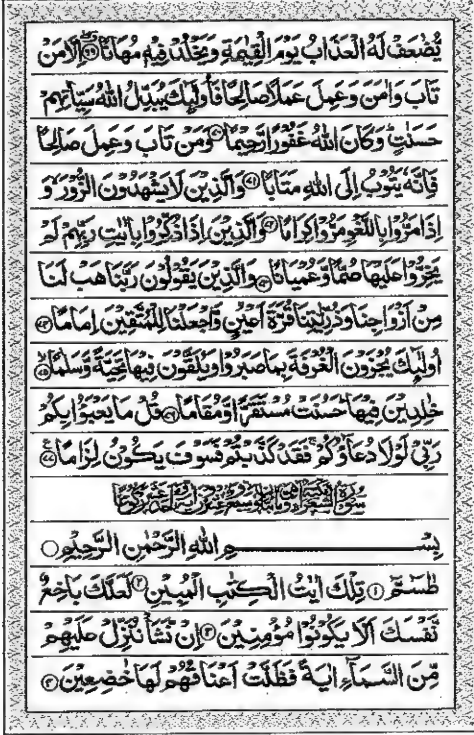 يُّضٰعَفْ لَهُ الْعَذَابُ يَوْمَ الْقِيٰمَةِ وَيَخْلُدْ فِيْهٖ مُهَانًا ﴿۶۹﴾ اِلَّا مَنْ
تَابَ وَاٰمَنَ وَعَمِلَ عَمَلًا صَالِحًا فَاُولٰٓئِكَ يُبَدِّلُ اللّٰهُ سَيِّاٰتِهِمْ
حَسَنٰتٍ ؕ وَكَانَ اللّٰهُ غَفُوْرًا رَّحِيْمًا ﴿۷۰﴾ وَمَنْ تَابَ وَعَمِلَ صَالِحًا
فَاِنَّهٗ يَتُوْبُ اِلَى اللّٰهِ مَتَابًا ﴿۷۱﴾ وَالَّذِيْنَ لَا يَشْهَدُوْنَ الزُّوْرَ ۙ وَ
اِذَا مَرُّوْا بِاللَّغْوِ مَرُّوْا كِرَامًا ﴿۷۲﴾ وَالَّذِيْنَ اِذَا ذُكِّرُوْا بِاٰيٰتِ رَبِّهِمْ لَمْ
يَخِرُّوْا عَلَيْهَا صُمًّا وَّعُمْيَانًا ﴿۷۳﴾ وَالَّذِيْنَ يَقُوْلُوْنَ رَبَّنَا هَبْ لَنَا
مِنْ اَزْوَاجِنَا وَذُرِّيّٰتِنَا قُرَّةَ اَعْيُنٍ وَّاجْعَلْنَا لِلْمُتَّقِيْنَ اِمَامًا ﴿۷۴﴾
اُولٰٓئِكَ يُجْزَوْنَ الْغُرْفَةَ بِمَا صَبَرُوْا وَيُلَقَّوْنَ فِيْهَا تَحِيَّةً وَّسَلٰمًا ﴿۷۵﴾
خٰلِدِيْنَ فِيْهَا ؕ حَسُنَتْ مُسْتَقَرًّا وَّمُقَامًا ﴿۷۶﴾ قُلْ مَا يَعْبَؤُا بِكُمْ
رَبِّيْ لَوْلَا دُعَآؤُكُمْ ۚ فَقَدْ كَذَّبْتُمْ فَسَوْفَ يَكُوْنُ لِزَامًا ﴿۷۷﴾
سُوْرَةُ الشُّعَرَآءِ مَكِّيَّةٌ
بِسْمِ اللّٰهِ الرَّحْمٰنِ الرَّحِيْمِ
طٰسٓمّٓ ﴿۱﴾ تِلْكَ اٰيٰتُ الْكِتٰبِ الْمُبِيْنِ ﴿۲﴾ لَعَلَّكَ بَاخِعٌ
نَّفْسَكَ اَلَّا يَكُوْنُوْا مُؤْمِنِيْنَ ﴿۳﴾ اِنْ نَّشَاْ نُنَزِّلْ عَلَيْهِمْ
مِّنَ السَّمَآءِ اٰيَةً فَظَلَّتْ اَعْنَاقُهُمْ لَهَا خٰضِعِيْنَ ﴿۴﴾